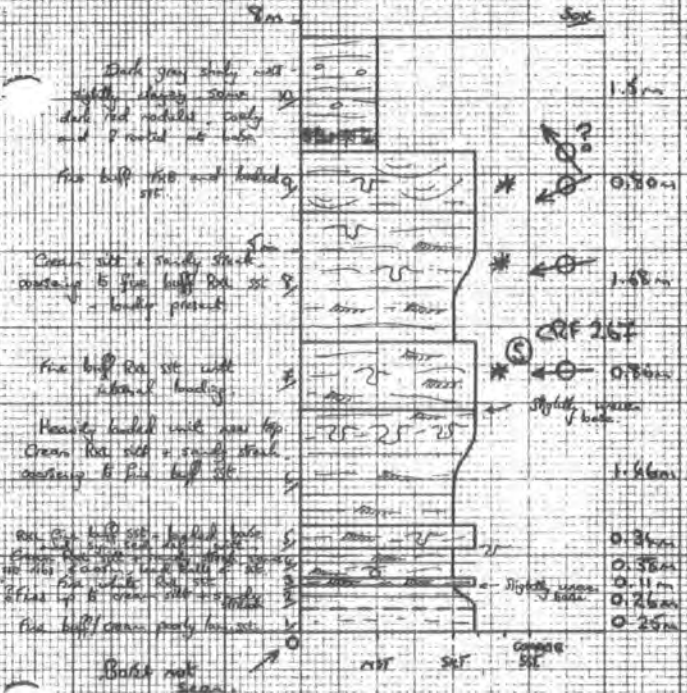 8m
50X
Dark grey shaly mst
slightly clayey some
dark red nodules. coaly
and ? rooted at base
10
1.5m
?
Fine buff RxB and loaded
sst.
9
0.80m
5m
Cream silt + sandy streak
coarsening to fine buff Rxl sst
- loading present
8
1.68m
CRF 267
5
Fine buff Rxl sst with
internal loading.
7
0.80m
Slightly uneven
base.
Heavily loaded unit near top.
Cream Rxl silt + sandy streak
coarsening to fine buff sst.
6
1.46m
Rxl fine buff sst - loaded base
5
0.34m
4
0.35m
Fine white Rxl sst
3
Slightly uneven
base
0.11m
Fines up to cream silt + sandy
streak
2
0.26m
Fine buff/cream poorly lam. sst.
1
0.25m
0
Base not
seen.
MST
SILT
COARSE
SST